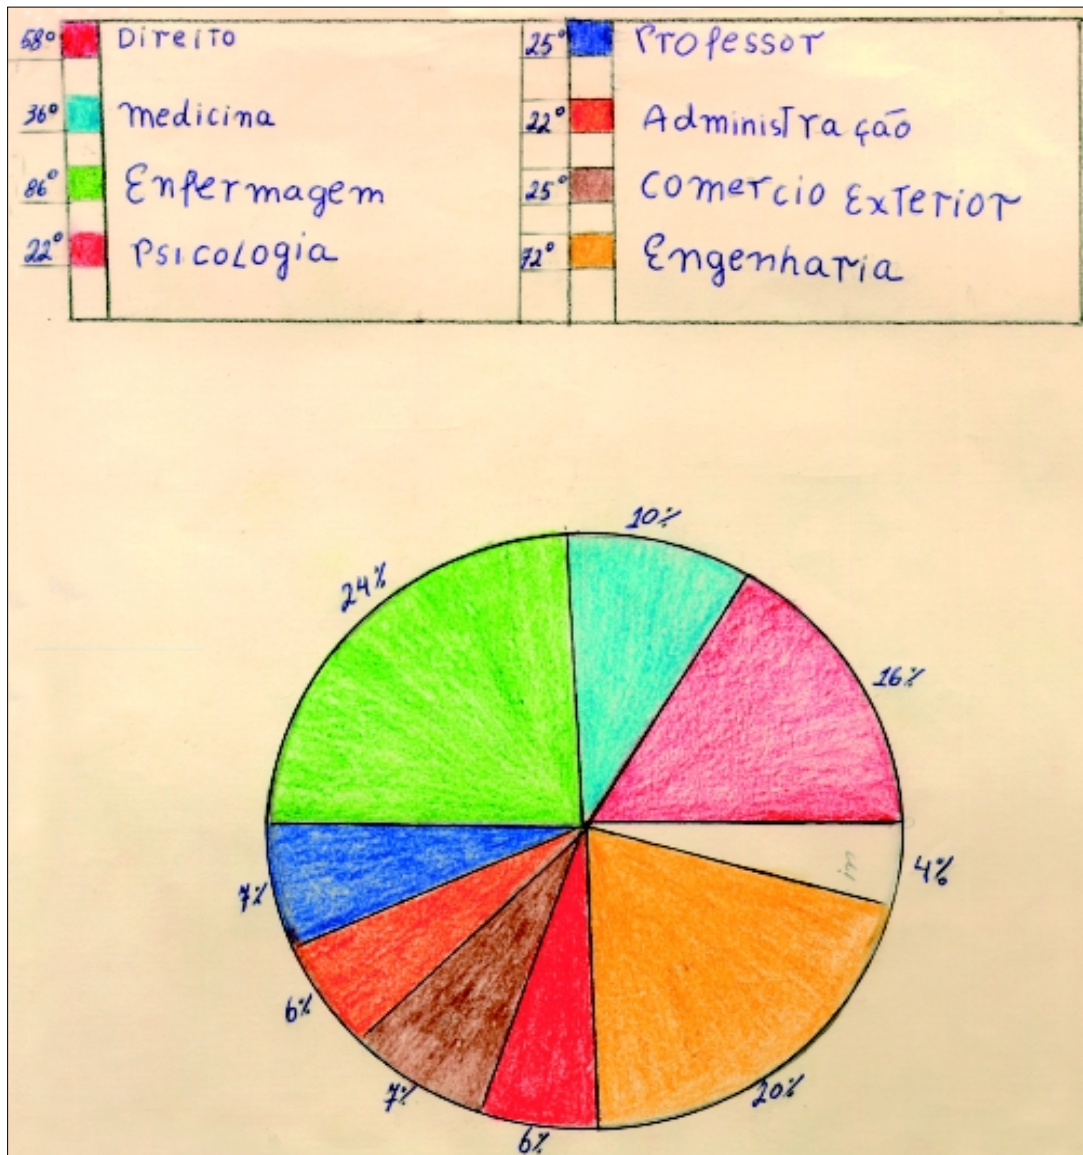 58° Direito
36° medicina
86° Enfermagem
22° Psicologia
25° Professor
22° Administração
25° comercio Exterior
72° Engenharia
10%
24%
16%
4%
7%
6%
7%
20%
6%